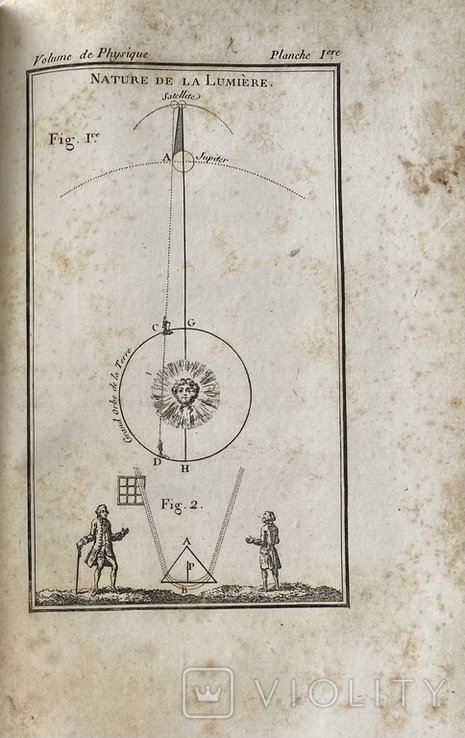 Volume de Physique Planche I^ere
NATURE DE LA LUMIÈRE.
Satellite
Fig. I^re.
A Jupiter
C G
Grand Orbe de la Terre
D H
Fig. 2.
A
P
B
VIOLITY